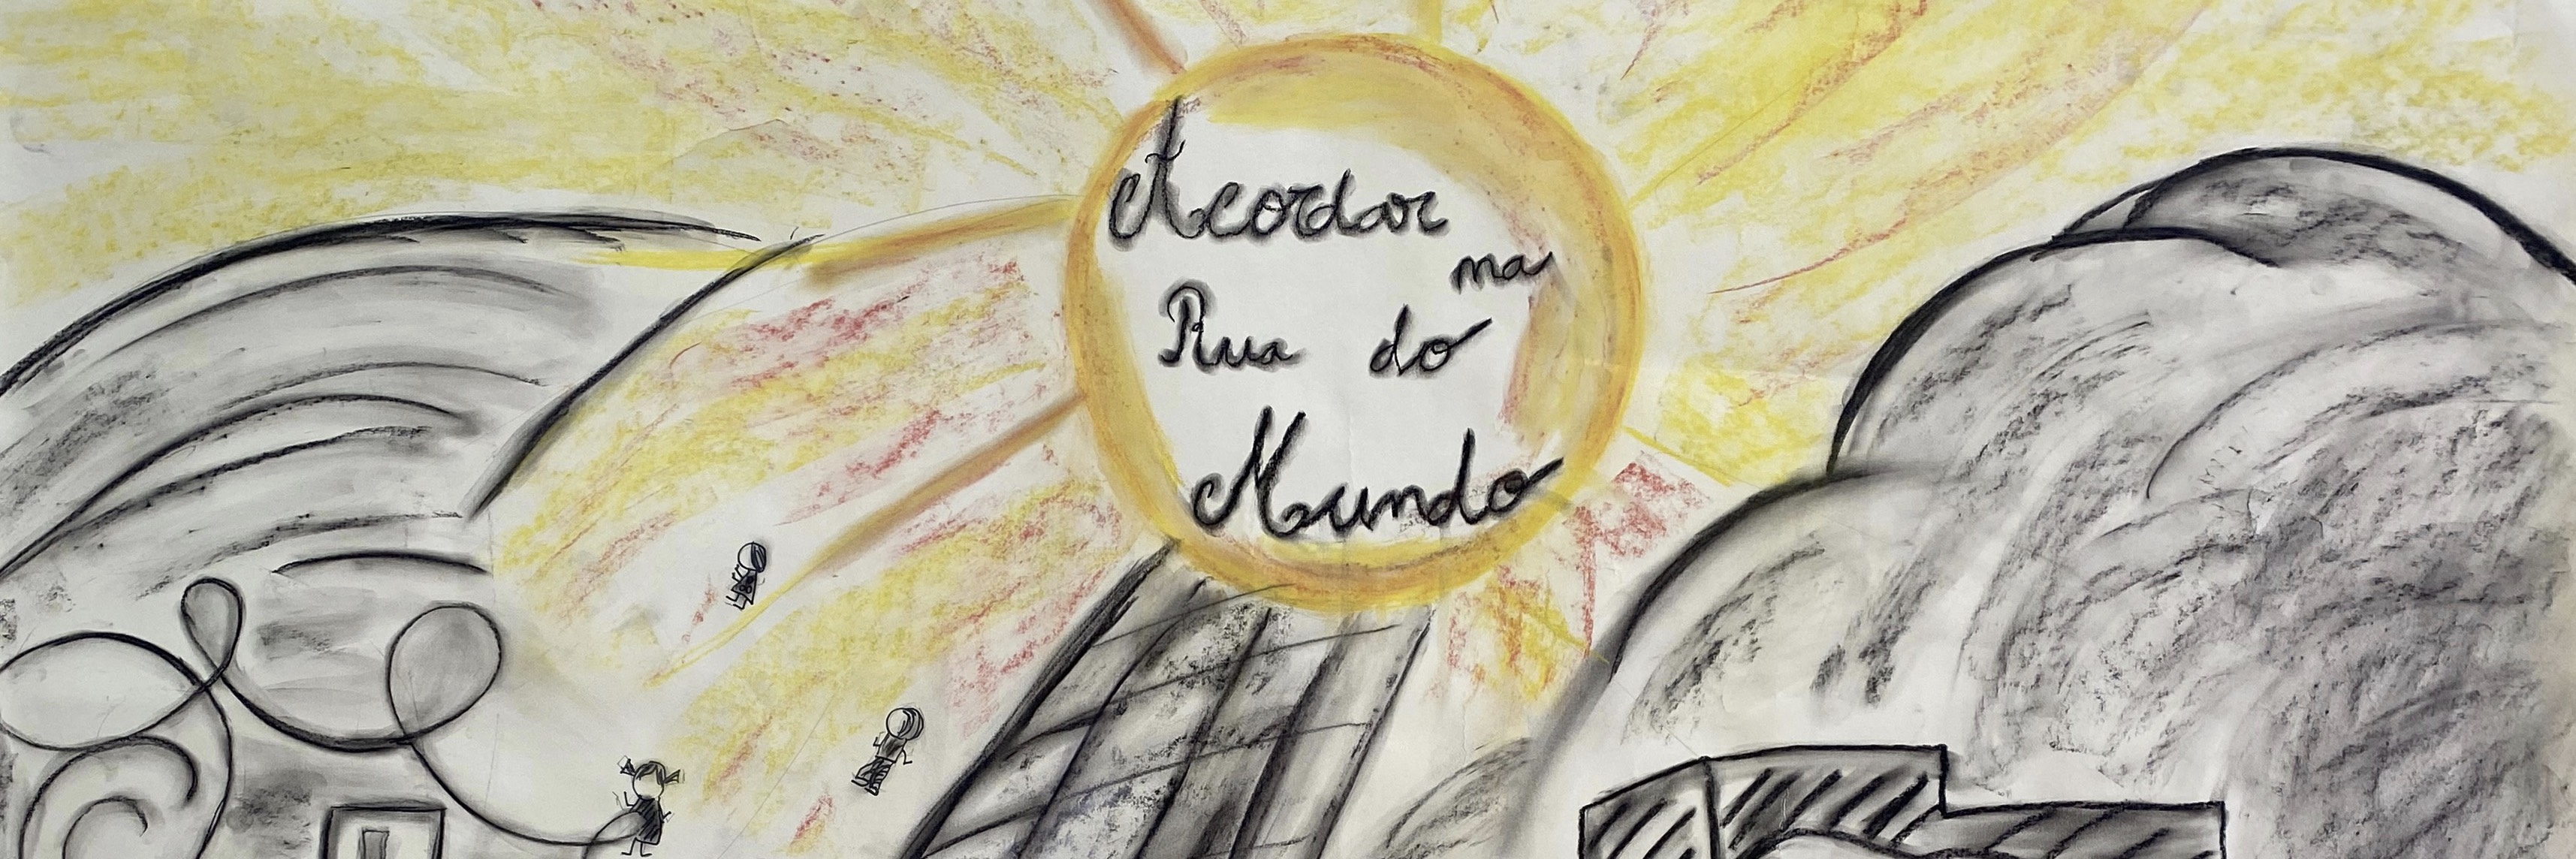 Acordar
na
Rua do
Mundo